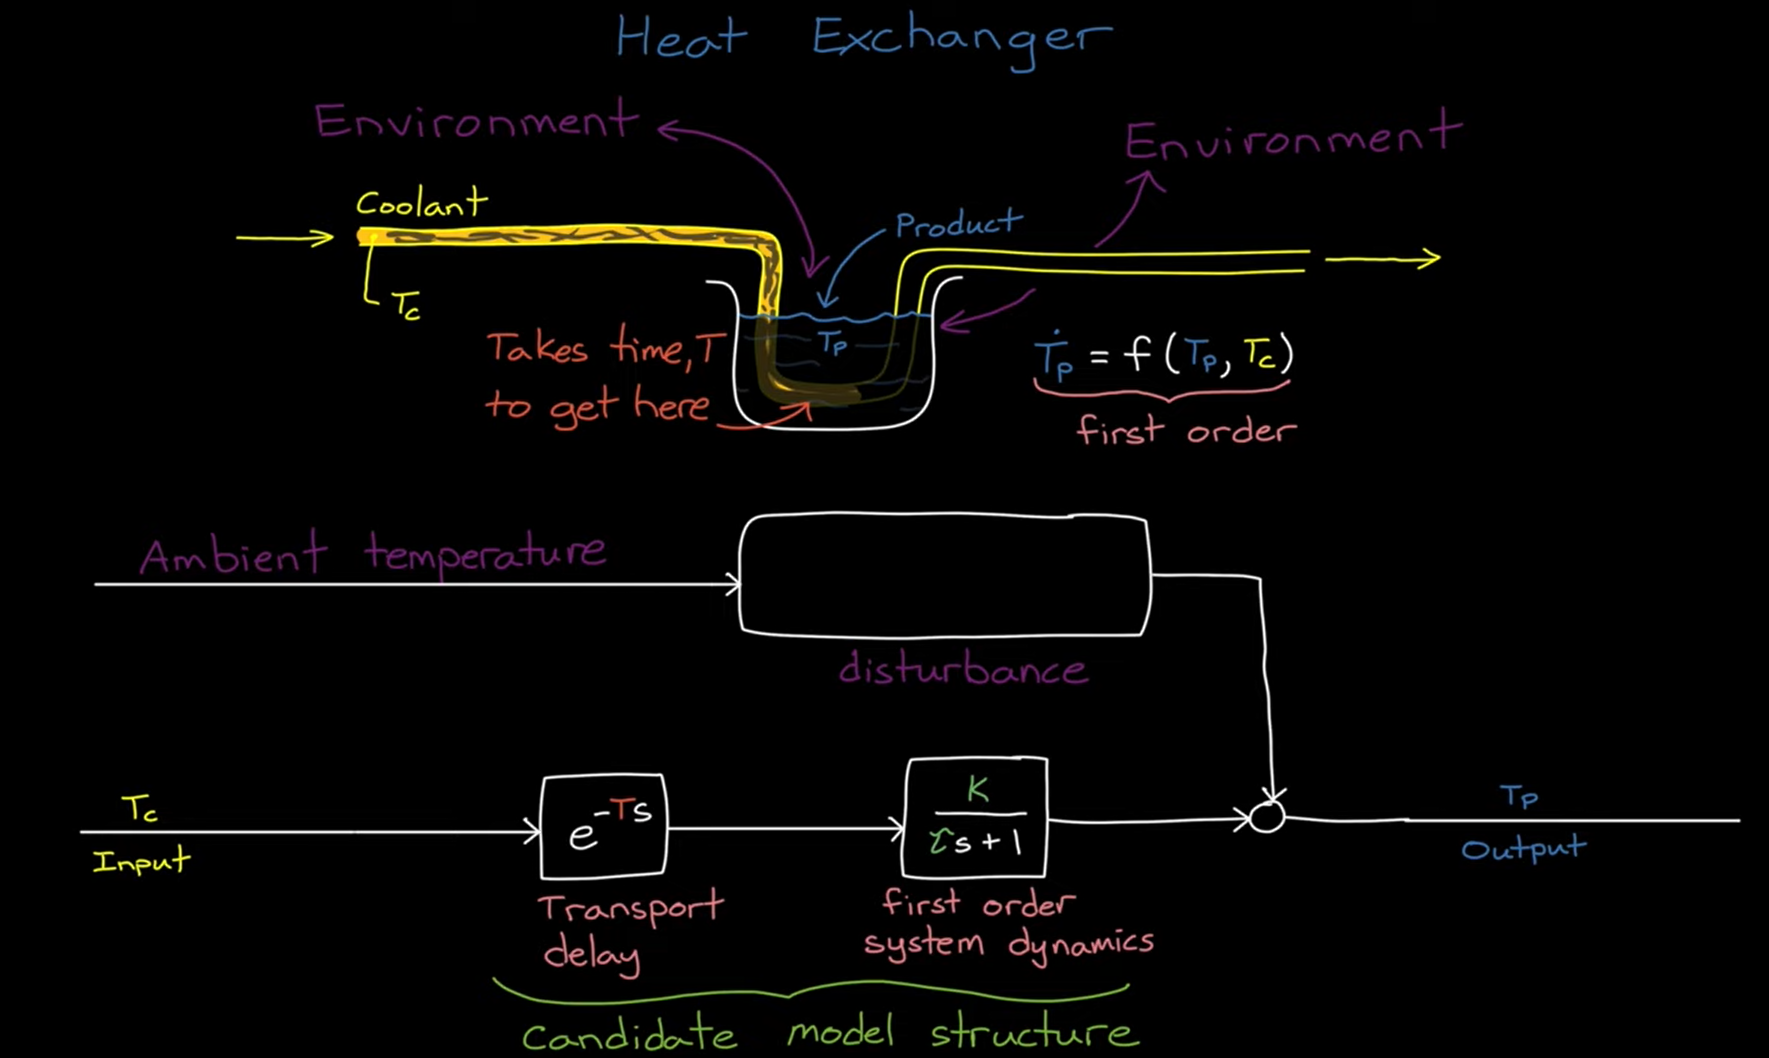 Heat Exchanger
Environment
Environment
Coolant
Product
Tc
Tp
Takes time, T
to get here
Ṫp = f (Tp, Tc)
first order
Ambient temperature
disturbance
Tc
Input
e^-Ts
K
τs+1
Tp
Output
Transport
delay
first order
system dynamics
Candidate model structure